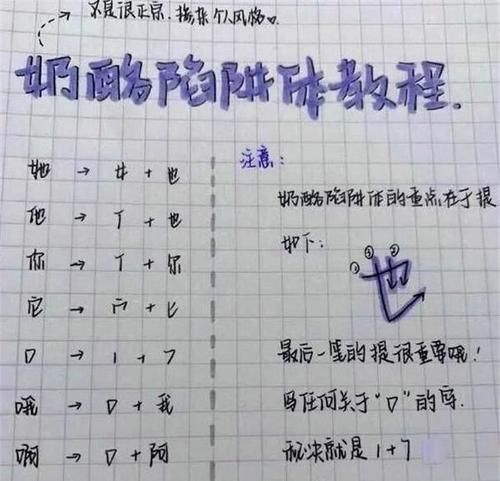 不是很正宗.掺杂个人风格。
奶酪陷阱体教程.
她 → 女 + 也
他 → 亻 + 也
你 → 亻 + 尔
它 → 宀 + 匕
口 → 1 + 7
哦 → 口 + 我
啊 → 口 + 阿
注意:
奶酪陷阱体的重点在于提
如下:
① ② ③
也
最后一笔的提很重要哦!
写任何关于“口”的字.
秘决就是 1+7